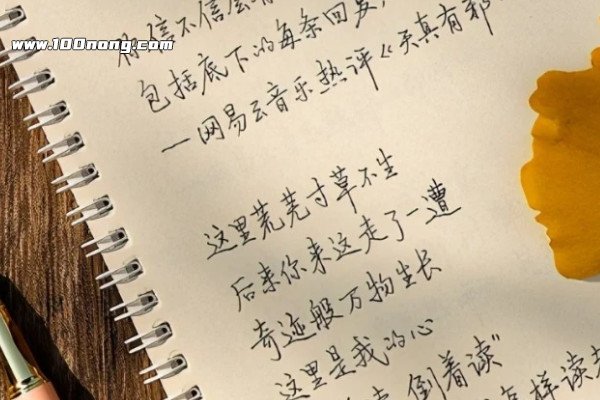 www.100nong.com
你信不信会有
包括底下的每条回复
—网易云音乐热评《天真有邪
这里荒芜寸草不生
后来你来这走了一遭
奇迹般万物生长
这里是我的心
倒着读”
怎样读